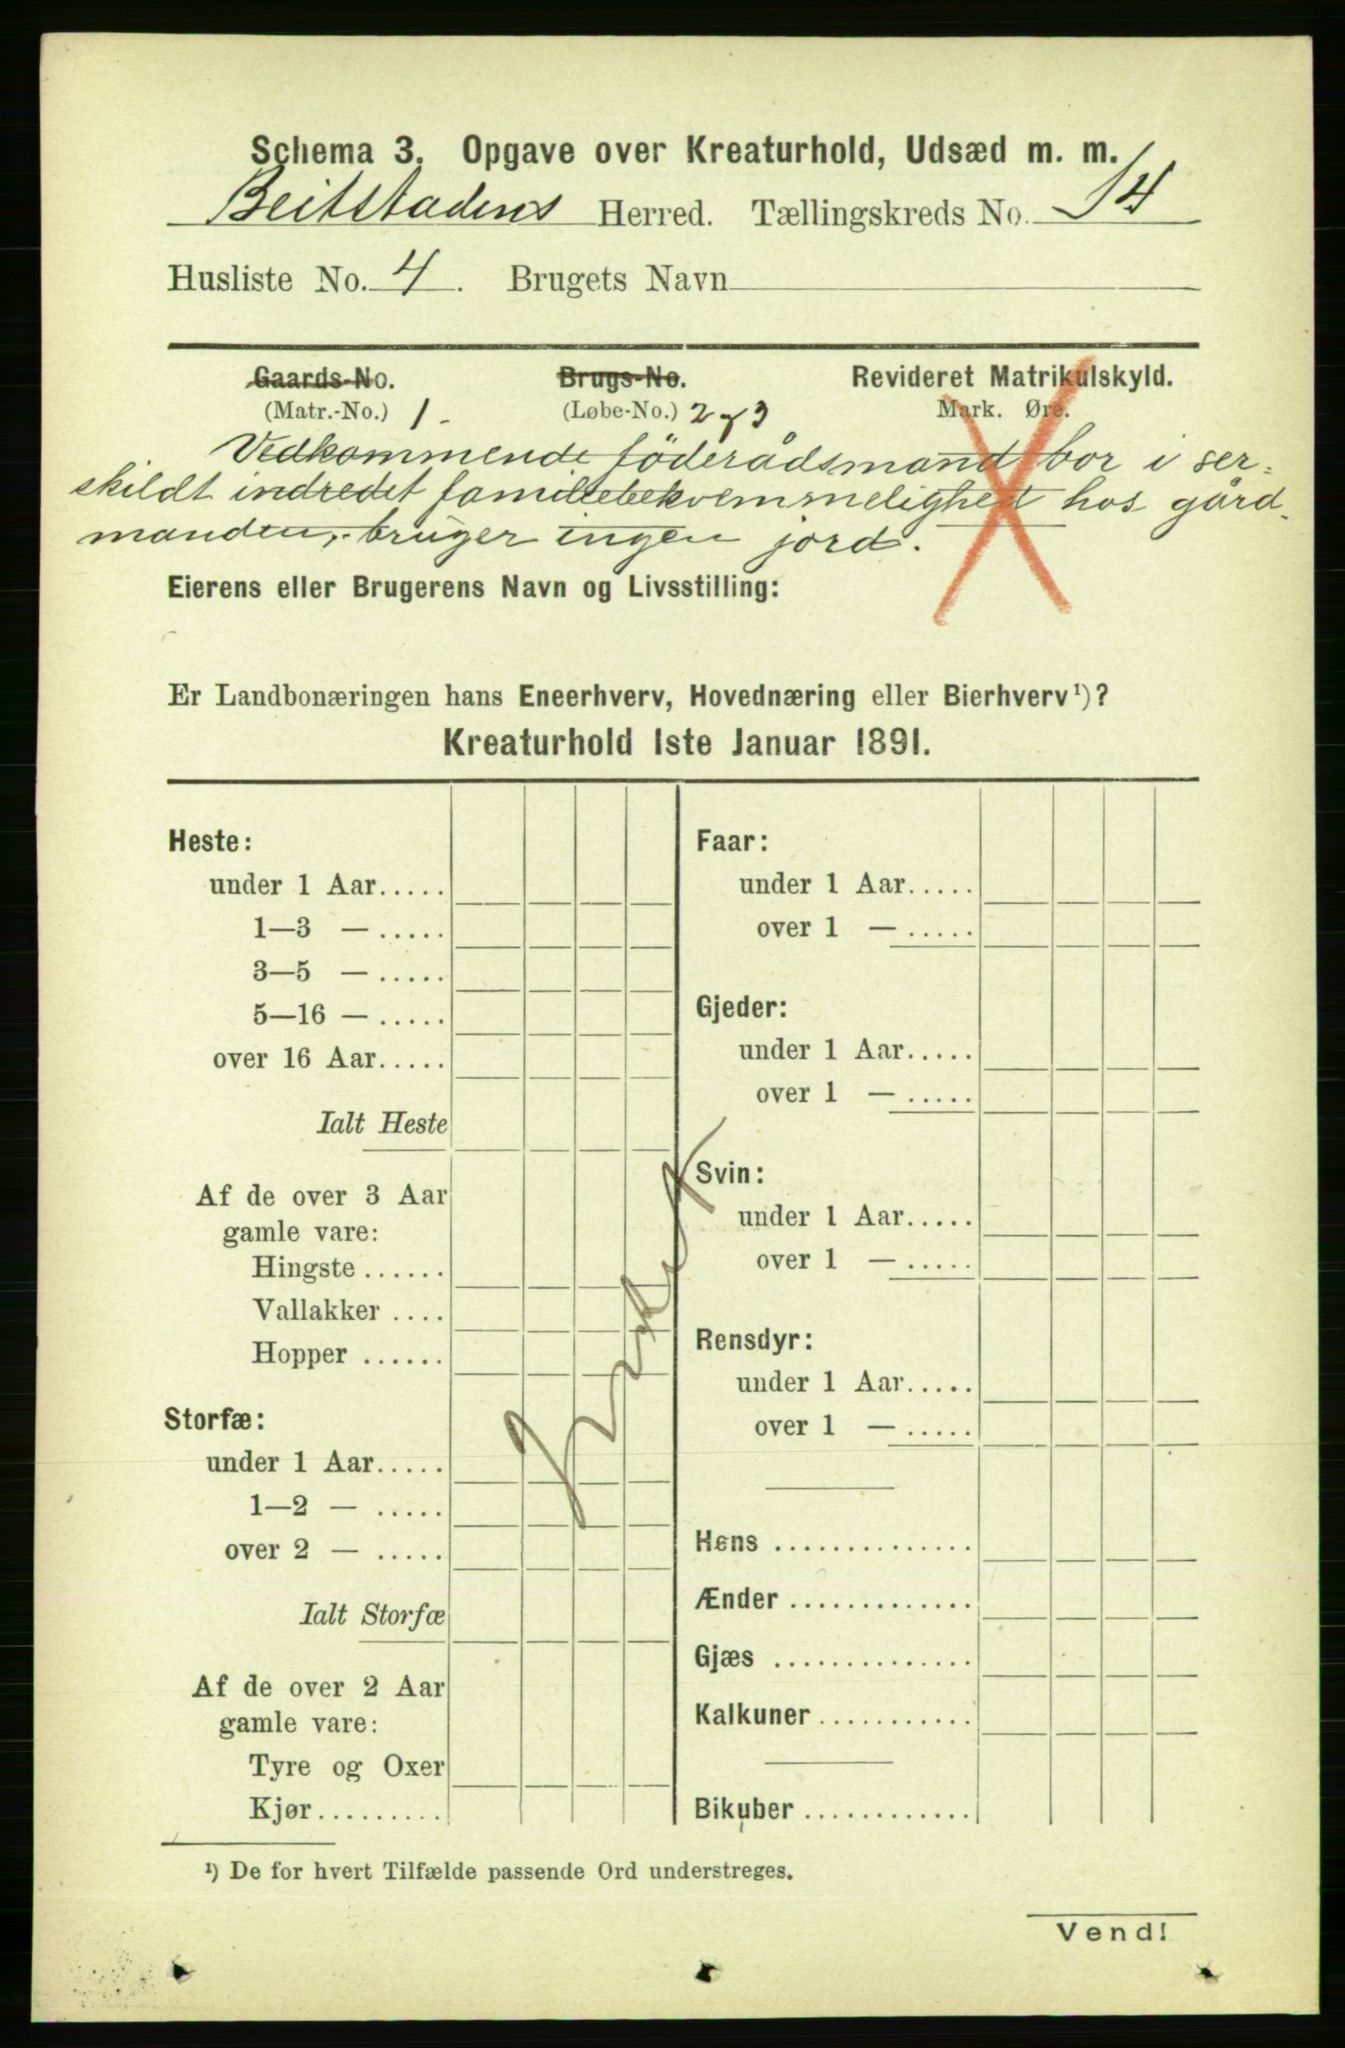 Schema 3. Opgave over Kreaturhold, Udsæd m. m.
Beitstadens Herred. Tællingskreds No. 14
Husliste No. 4. Brugets Navn
Gaards-No. Brugs-No. Revideret Matrikulskyld.
(Matr.-No.) 1. (Løbe-No.) 2 & 3 Mark. Øre.
Vedkommende föderådsmand bor i ser-
skildt indredet familiebekvemmelighed hos gård-
manden, bruger ingen jord.
Eierens eller Brugerens Navn og Livsstilling:
Er Landbonæringen hans Eneerhverv, Hovednæring eller Bierhverv¹)?
Kreaturhold 1ste Januar 1891.
Heste:
under 1 Aar.....
1—3 — .....
3—5 — .....
5—16 — .....
over 16 Aar.....
Ialt Heste
Af de over 3 Aar
gamle vare:
Hingste ......
Vallakker ....
Hopper ......
Storfæ:
under 1 Aar.....
1—2 — .....
over 2 — .....
Ialt Storfæ
Af de over 2 Aar
gamle vare:
Tyre og Oxer
Kjør.........
Faar:
under 1 Aar.....
over 1 — .....
Gjeder:
under 1 Aar.....
over 1 — .....
Svin:
under 1 Aar.....
over 1 — .....
Rensdyr:
under 1 Aar.....
over 1 — .....
Høns ..............
Ænder .............
Gjæs ..............
Kalkuner ...........
Bikuber ............
¹) De for hvert Tilfælde passende Ord understreges.
Vend!